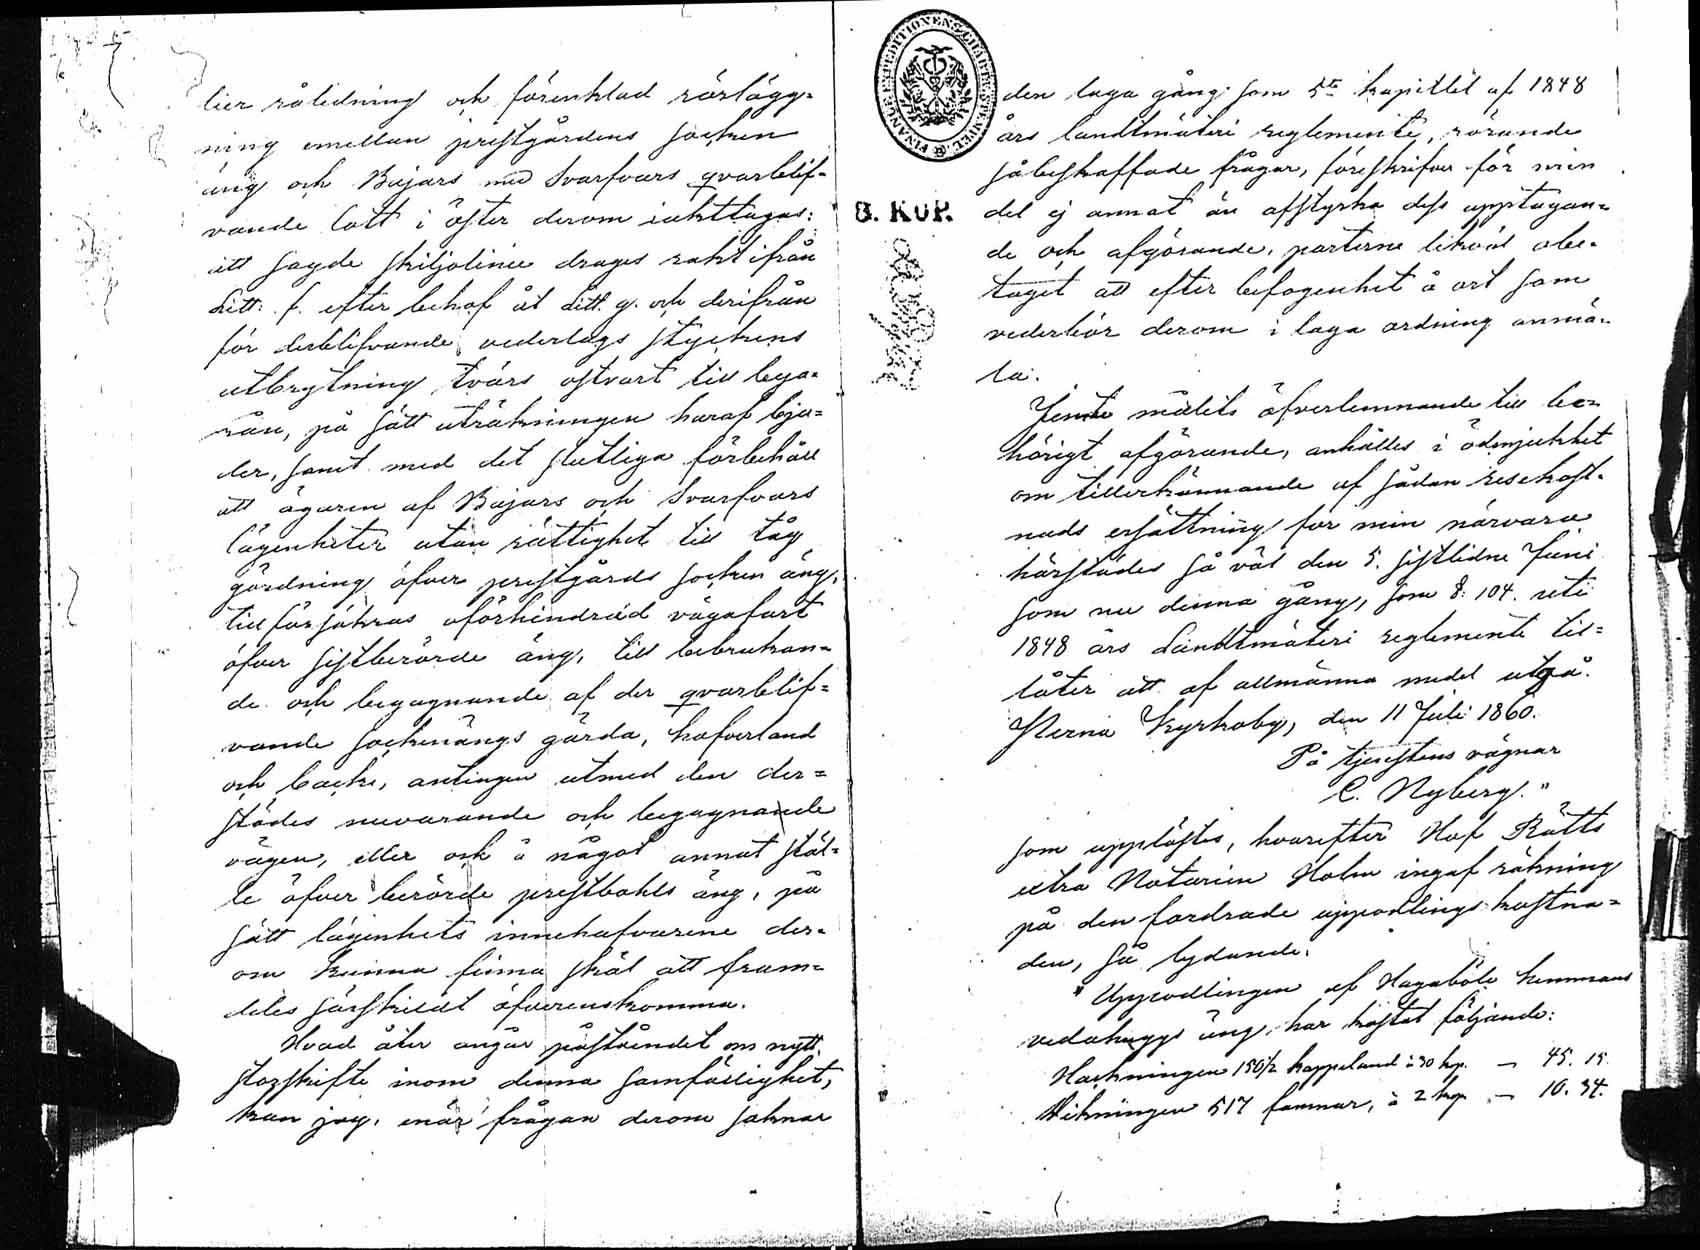 lier råledning och förenklad rörlägg=
ning emellan prestgårdens socken
äng och Bujars med Svarfvars qvarblif=
vande lott i öster derom iakttagas:
att sagde skiljolinie drages rakt ifrån
Litt: f. efter behof åt Litt. g. och derifrån
för blifvande vederlags styckens
utbrytning, tvärs ostvart till bya=
rån, på sätt uträkningen haraf bju=
der, samt med det slutliga förbehåll
att ägaren af Bujars och Svarfvars
lägenheter utan rättighet till tåg
gärdning öfver prestgårds socken äng,
tillförsäkras oförhindrad vägafart
öfver sistberörde äng, till bebrukan=
de och begagnande af der qvarblif=
vande sockenängs gärda, hafverland
och backe, antingen utmed den der=
städes nuvarande och begagnande
vägen, eller ock å något annat stäl=
le öfver berörde prestbohls äng, på
sätt lägenhets innehafvarene der=
om kunna finna skäl att fram=
deles särskildt öfverenskomma.
Hvad åter angår påståendet om nytt
storskifte inom denna samfällighet,
kan jag, enär frågan derom saknar
FINANCE EXPEDITIONENS CHARTÆ STEMPEL
8. KOP.
den laga gång som 5te kapitlet af 1848
års landtmäteri reglemente, rörande
såbeskaffade frågor, föreskrifver för min
del ej annat än afstyrka dess upptagan=
de och afgörande, parterne likväl obe=
taget att efter befogenhet å ort som
vederbör derom i laga ordning anmä=
la.
Jemte målets öfverlemnande till be=
hörigt afgörande, anhålles i ödmjukhet
om tillerkännande af sådan resekost=
nads ersättning för min närvaro
härstädes så väl den 5. sistlidne Juni
som nu denna gång, som §. 104. uti
1848 års Landtmäteri reglemente til=
låter att af allmänna medel utgå.
Perno Kyrkoby, den 11 Juli 1860.
På tjenstens vägnar
C. Nyberg."
som upplästes, hvarefter Hof Rätts
extra Notarien Holm ingaf räkning
på den fordrade uppodlings kostna=
den, så lydande:
"Uppodlingen af Hagaböle hemmans
vedahuggs äng, har kostat följande:
Hackningen 150 1/2 kappeland à 30 kop. — 45. 15.
Dikningen 517 famnar, à 2 kop. — 10. 34.